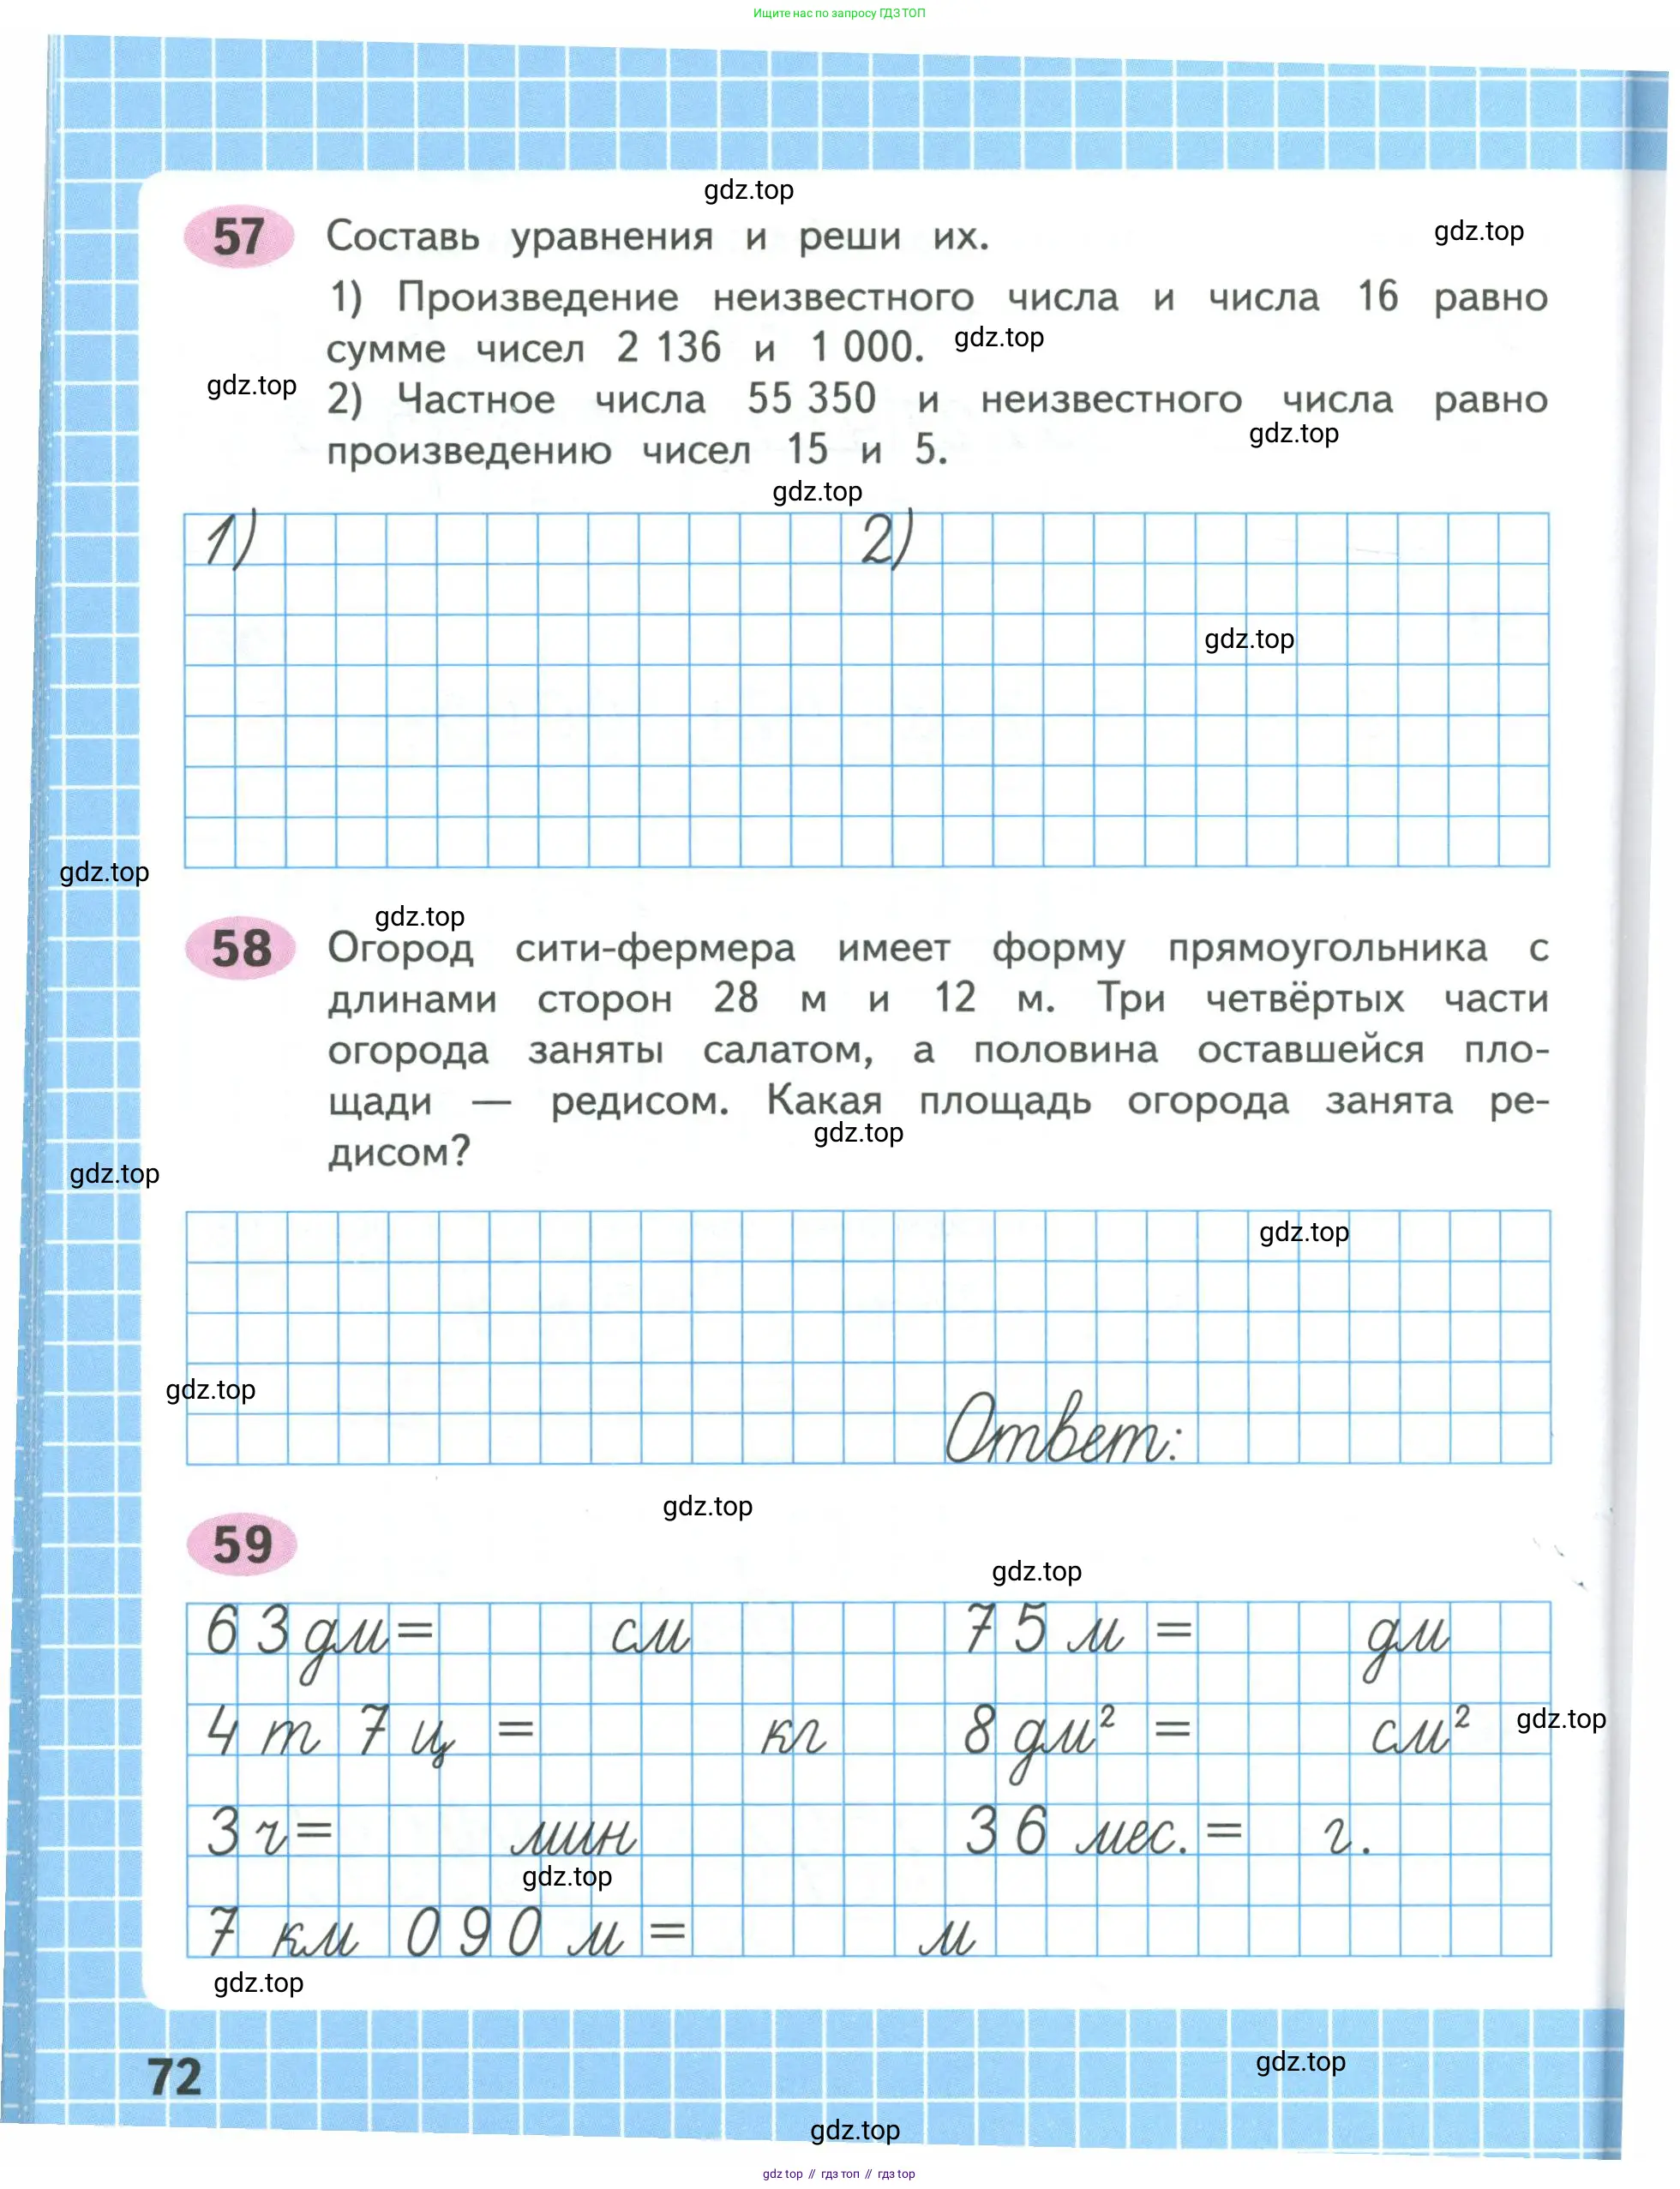 Ищите нас по запросу ГДЗ ТОП
gdz.top
57 Составь уравнения и реши их.
gdz.top
1) Произведение неизвестного числа и числа 16 равно
сумме чисел 2 136 и 1 000.
gdz.top
gdz.top
2) Частное числа 55 350 и неизвестного числа равно
произведению чисел 15 и 5.
gdz.top
gdz.top
1) 2)
gdz.top
gdz.top
gdz.top
58 Огород сити-фермера имеет форму прямоугольника с
длинами сторон 28 м и 12 м. Три четвёртых части
огорода заняты салатом, а половина оставшейся пло-
щади — редисом. Какая площадь огорода занята ре-
gdz.top
дисом?
gdz.top
gdz.top
gdz.top
Ответ:
gdz.top
59
gdz.top
63 дм = см 75 м = дм
4 т 7 ц = кг 8 дм² = см²
gdz.top
3 ч = мин 36 мес. = г.
gdz.top
7 км 090 м = м
gdz.top
72
gdz.top
gdz.top
gdz top // гдз топ // гдз top